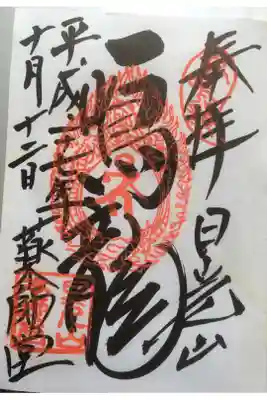 奉拝
日光山
鳴龍
平成二十七年
十月十二日
薬師堂